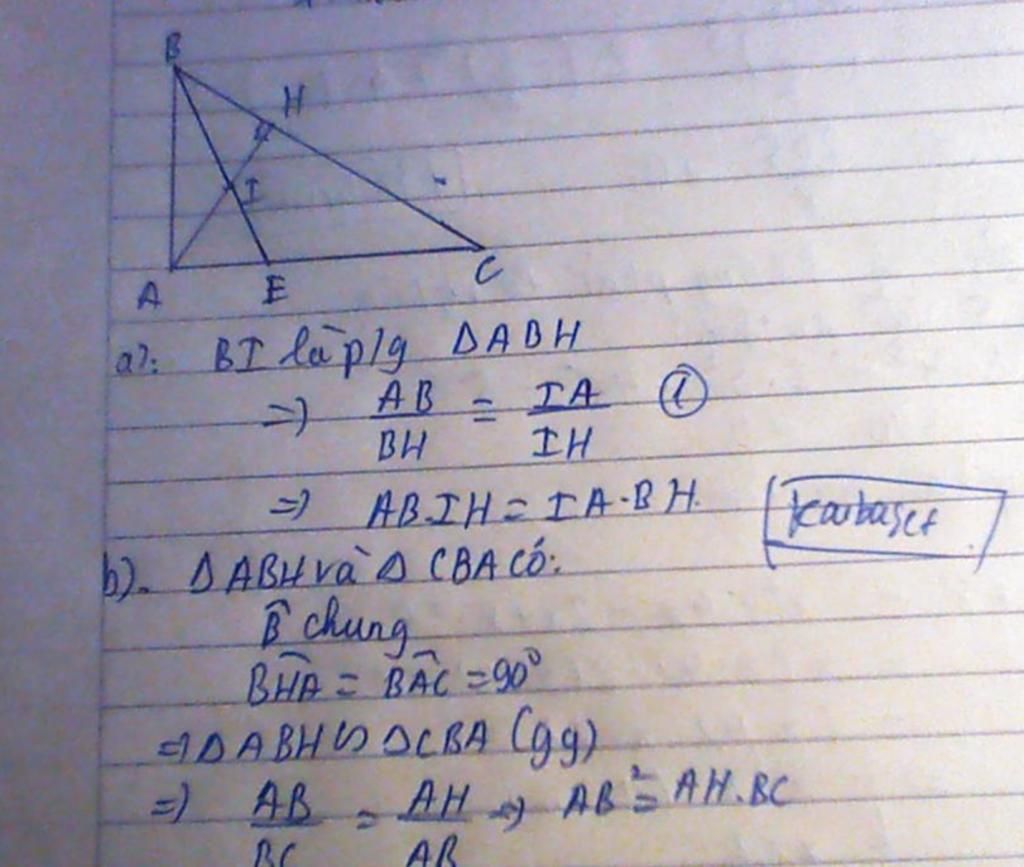 B
H
I
A E C
a): BI là p/g ΔABH
=> AB/BH = IA/IH ①
=> AB.IH = IA.BH.
b). ΔABH và Δ CBA có:
B̂ chung
BĤA = BÂC = 90°
=> ΔABH ∽ ΔCBA (gg)
=> AB/BC = AH/AB => AB² = AH.BC